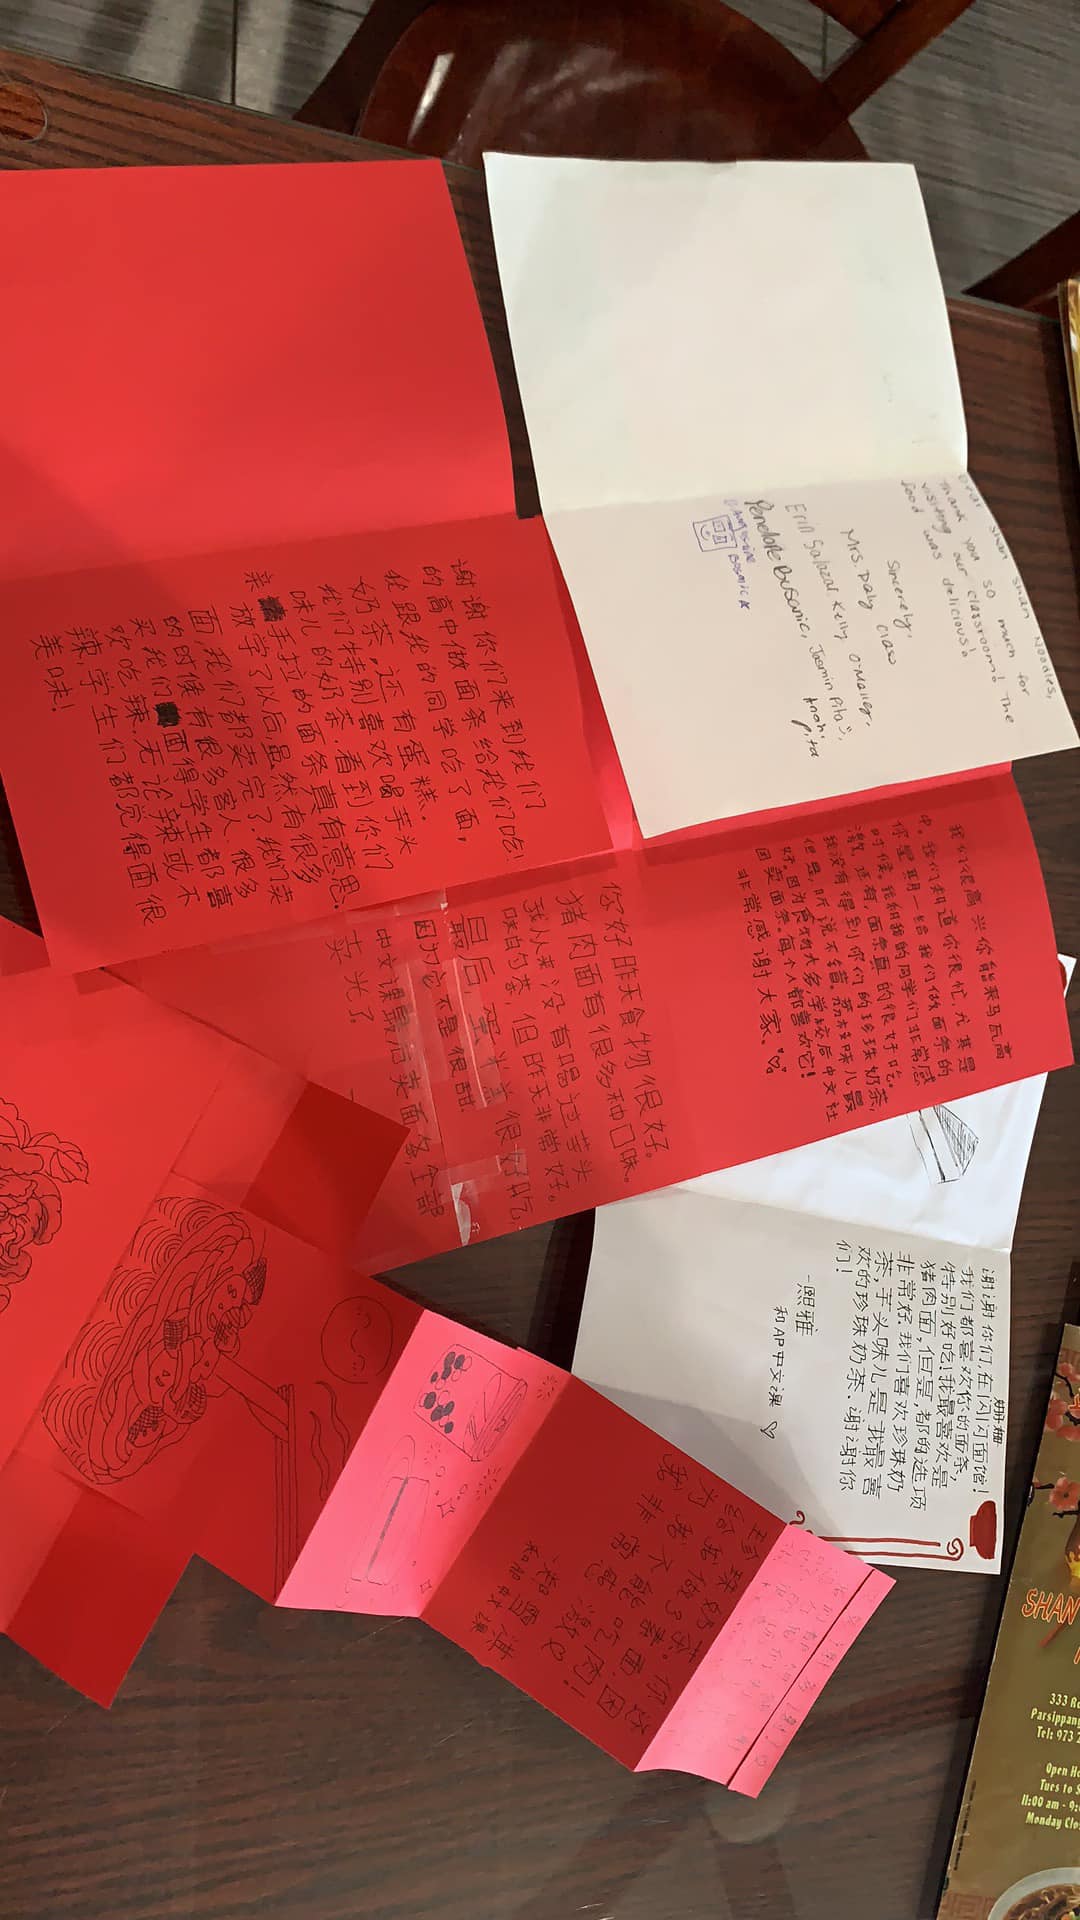 Dear Shan Shan Noodles,
Thank you so much for
visiting our classroom! The
food was delicious!
Sincerely,
Mrs. Daly class
Erin Salazar, Kelly O'Malley,
Penelope Busanic, Jasmin Pita
谢谢你们来到我们
的高中做面条给我们吃!
我跟我的同学吃了面,
奶茶,还有蛋糕.
我们特别喜欢喝芋头
味儿的奶茶.看到你们
亲手拉的面条真有意思.
放学了以后,虽然有很多
面,我们都卖完了.我们卖
的时候有很多客人.很多
买我们面得学生都喜
欢吃辣.无论辣或不
辣,学生们都觉得面很
美味!
我们很高兴你能来马瓦高
中。我们知道你很忙尤其是
你星期一给我们做面条的
时候。我和我的同学们非常感
激,还有面条真的很好吃。
我没有得到你们的珍珠奶茶,
但是,听说不错,荔枝味儿最
好。因为食物太多,学校后中文社
团卖面条。每个人都喜欢它!
非常感谢大家、
你好昨天食物很好。
猪肉面有很多种口味。
我从来没有喝过芋头
味的茶,但昨天非常好。
最后,蛋糕很好吃,
因为它不是很甜
中文课最后卖面条,全部
卖光了.
谢谢你们在闪闪面馆!
姗姗
我们都喜欢你的面条,
特别好吃!我最喜欢是
猪肉面,但是,都的选项
非常好.我们喜欢珍珠奶
茶,芋头味儿是我最喜
欢的珍珠奶茶.谢谢你
们!
-熙雅
和AP中文课
珍珠奶茶。你
给我做了素面
我不能吃肉!
非常感激
SHAN
333 R
Parsippan
Tel: 973 2
Open Ho
Tues to S
11:00 am - 9:
Monday Clo